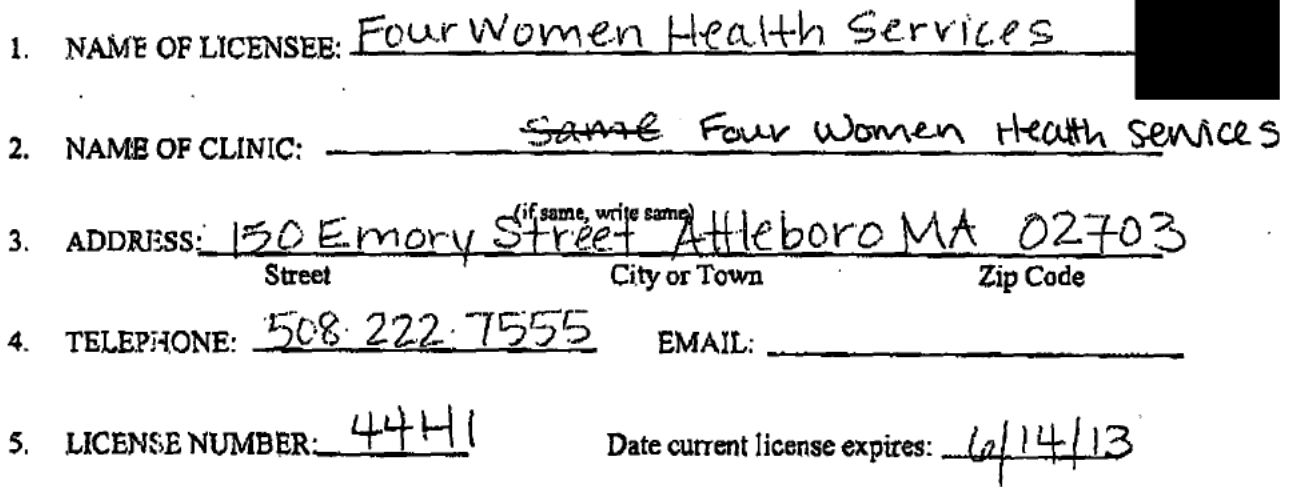 1. NAME OF LICENSEE: Four Women Health Services
2. NAME OF CLINIC: Same Four Women Health Services
(if same, write same)
3. ADDRESS: 150 Emory Street Attleboro MA 02703
Street City or Town Zip Code
4. TELEPHONE: 508.222.7555 EMAIL:
5. LICENSE NUMBER: 44H1 Date current license expires: 6/14/13